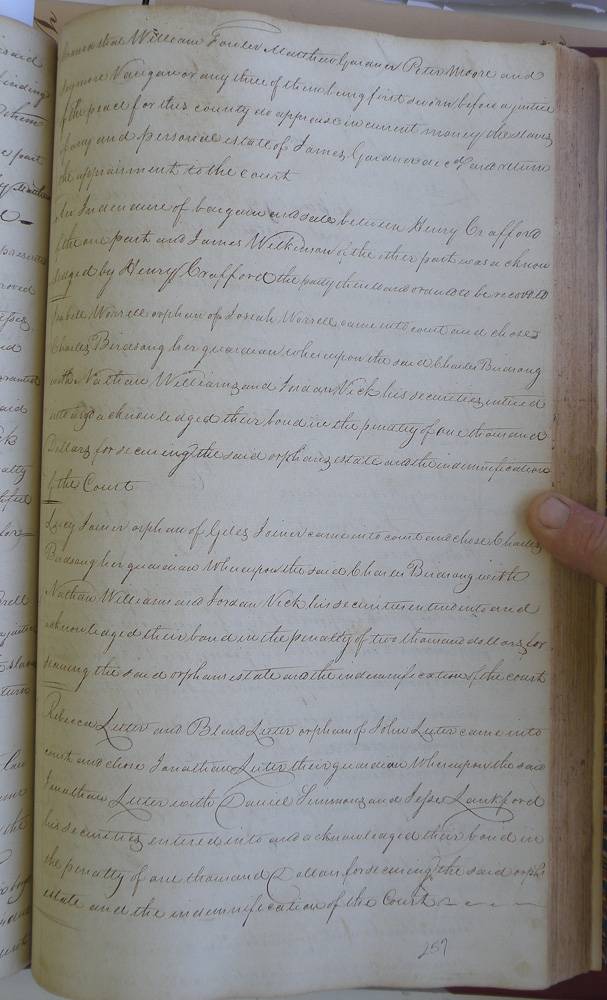 William Fowler Matthew Gardner Peter Moore and
Vaugan or any three of them being first sworn before a justice
of the peace for this county do appraise in current money the slaves
if any and personal estate of James Gardner dec'd and return
the appraisment to the court
An Indenture of bargain and sale between Henry Crafford
of the one part and James Wilkinson of the other part was acknow
ledged by Henry Crafford the party thereto and ord'd to be recorded
Worrell orphan of Josiah Worrell came into court and chose
Charles Birdsong her guardian whereupon the said Charles Birdsong
with Nathan Williams and Jordan Vick his securities entered
into and acknowledged their bond in the penalty of one thousand
Dollars for securing the said orphans estate and the indemnification
of the Court
Lucy Joiner orphan of Giles Joiner came into court and chose Charles
Birdsong her guardian Whereupon the said Charles Birdsong with
Nathan Williams and Jordan Vick his securities entered into and
acknowledged their bond in the penalty of two thousand dollars for
securing the said orphans estate and the indemnification of the court
Rebecca Luter and Bland Luter orphan of John Luter came into
court and chose Jonathan Luter their guardian Whereupon the said
Jonathan Luter with Daniel Simmons and Jesse Lankford
his securities entered into and acknowledged their bond in
the penalty of one thousand Dollars for securing the said orph's
estate and the indemnification of the Court
257